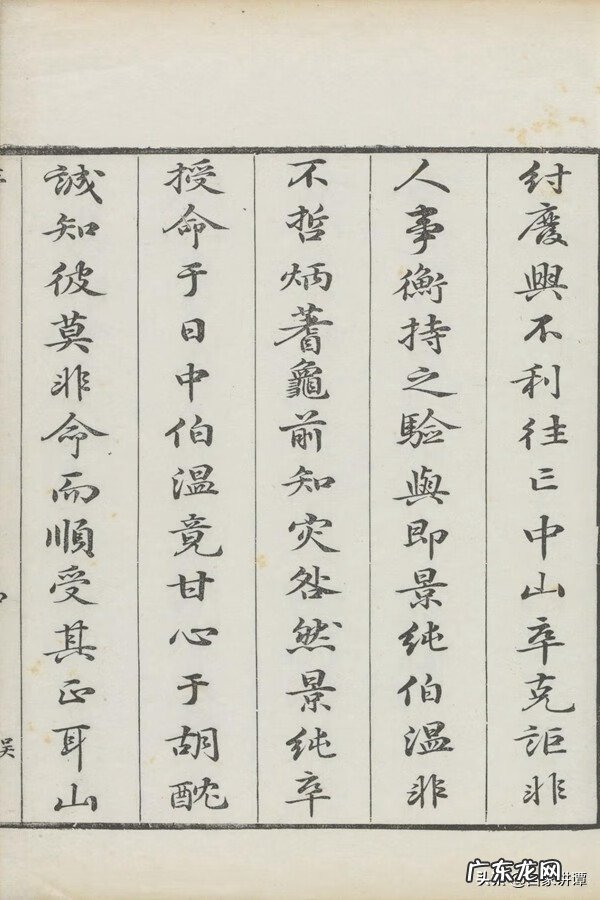 紂廢興不利往亡中山卒克詎非
人事衡持之驗與即景純伯溫非
不哲炳蓍龜前知灾咎然景純卒
授命于日中伯溫竟甘心于胡酖
誠知彼莫非命而順受其正耳山
广东龙网
讲谭